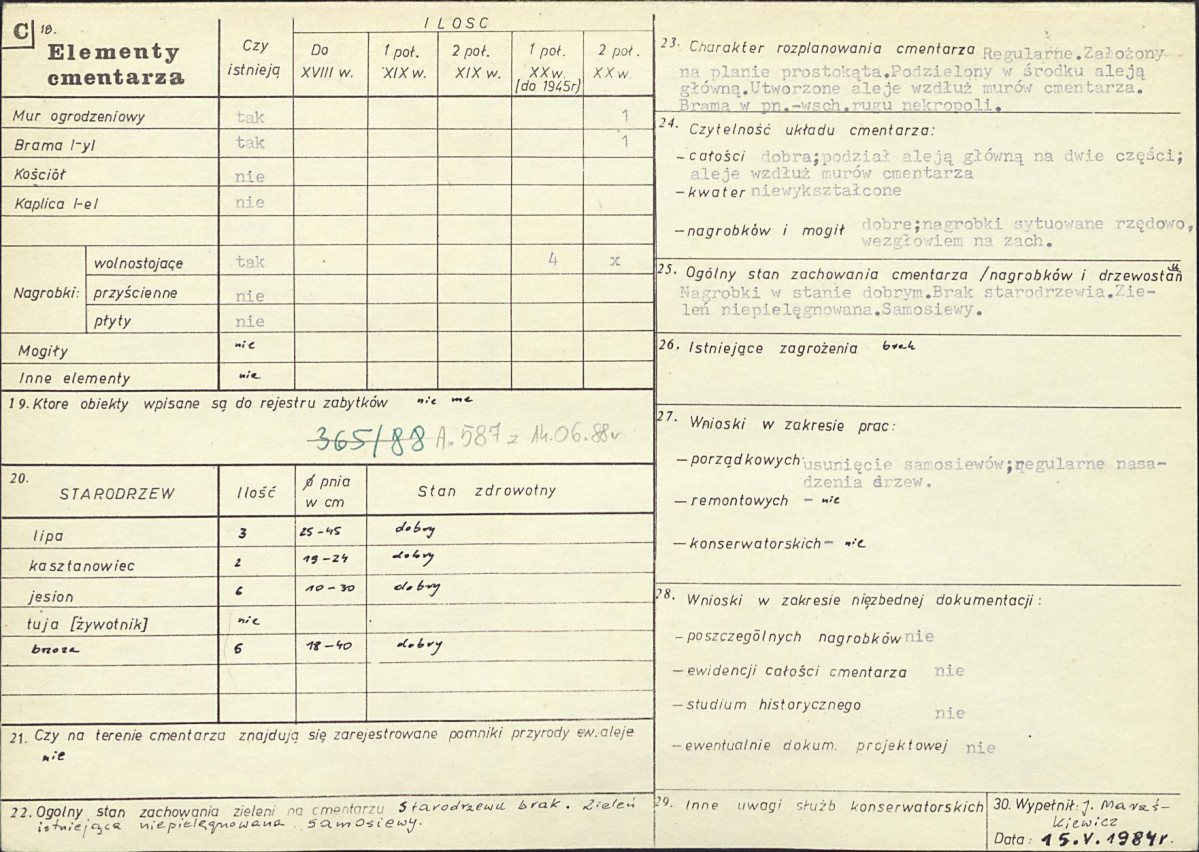 C 18.
Elementy
cmentarza
Czy
istnieją
ILOSC
Do
XVIII w.
1 poł.
XIX w.
2 poł.
XIX w.
1 poł.
XX w.
(do 1945r)
2 poł.
XX w.
Mur ogrodzeniowy tak 1
Brama /-y/ tak 1
Kościół nie
Kaplica /-e/ nie
Nagrobki: wolnostojące tak 4 x
przyścienne nie
płyty nie
Mogiły nie
Inne elementy nie
19. Ktore obiekty wpisane są do rejestru zabytków nie me
365/88 A. 587 z 14.06.88r
20.
STARODRZEW Ilość Ø pnia
w cm Stan zdrowotny
lipa 3 25-45 dobry
kasztanowiec 2 19-24 dobry
jesion 6 10-30 dobry
tuja [żywotnik] nie
brzoza 6 18-40 dobry
21. Czy na terenie cmentarza znajdują się zarejestrowane pomniki przyrody ew. aleje
nie
22. Ogolny stan zachowania zieleni na cmentarzu Starodrzewu brak. Zieleń
istniejąca niepielęgnowana. Samosiewy.
23. Charakter rozplanowania cmentarza Regularne.Założony
na planie prostokąta.Podzielony w środku aleją
główną.Utworzone aleje wzdłuż murów cmentarza.
Brama w pn.-wsch.rugu nekropoli.
24. Czytelność układu cmentarza:
- całości dobra;podział aleją główną na dwie części;
aleje wzdłuż murów cmentarza
- kwater niewykształcone
- nagrobków i mogił dobre;nagrobki sytuowane rzędowo,
wezgłowiem na zach.
25. Ogólny stan zachowania cmentarza /nagrobków i drzewostanu
Nagrobki w stanie dobrym.Brak starodrzewia.Zie-
leń niepielęgnowana.Samosiewy.
26. Istniejące zagrożenia brak
27. Wnioski w zakresie prac:
- porządkowych usunięcie samosiewów;regularne nasa-
dzenia drzew.
- remontowych - nie
- konserwatorskich - nie
28. Wnioski w zakresie nięzbednej dokumentacji:
- poszczególnych nagrobków nie
- ewidencji całości cmentarza nie
- studium historycznego nie
- ewentualnie dokum. projektowej nie
29. Inne uwagi służb konserwatorskich
30. Wypełnił: J. Maraś-
kiewicz
Data: 15.V.1984r.